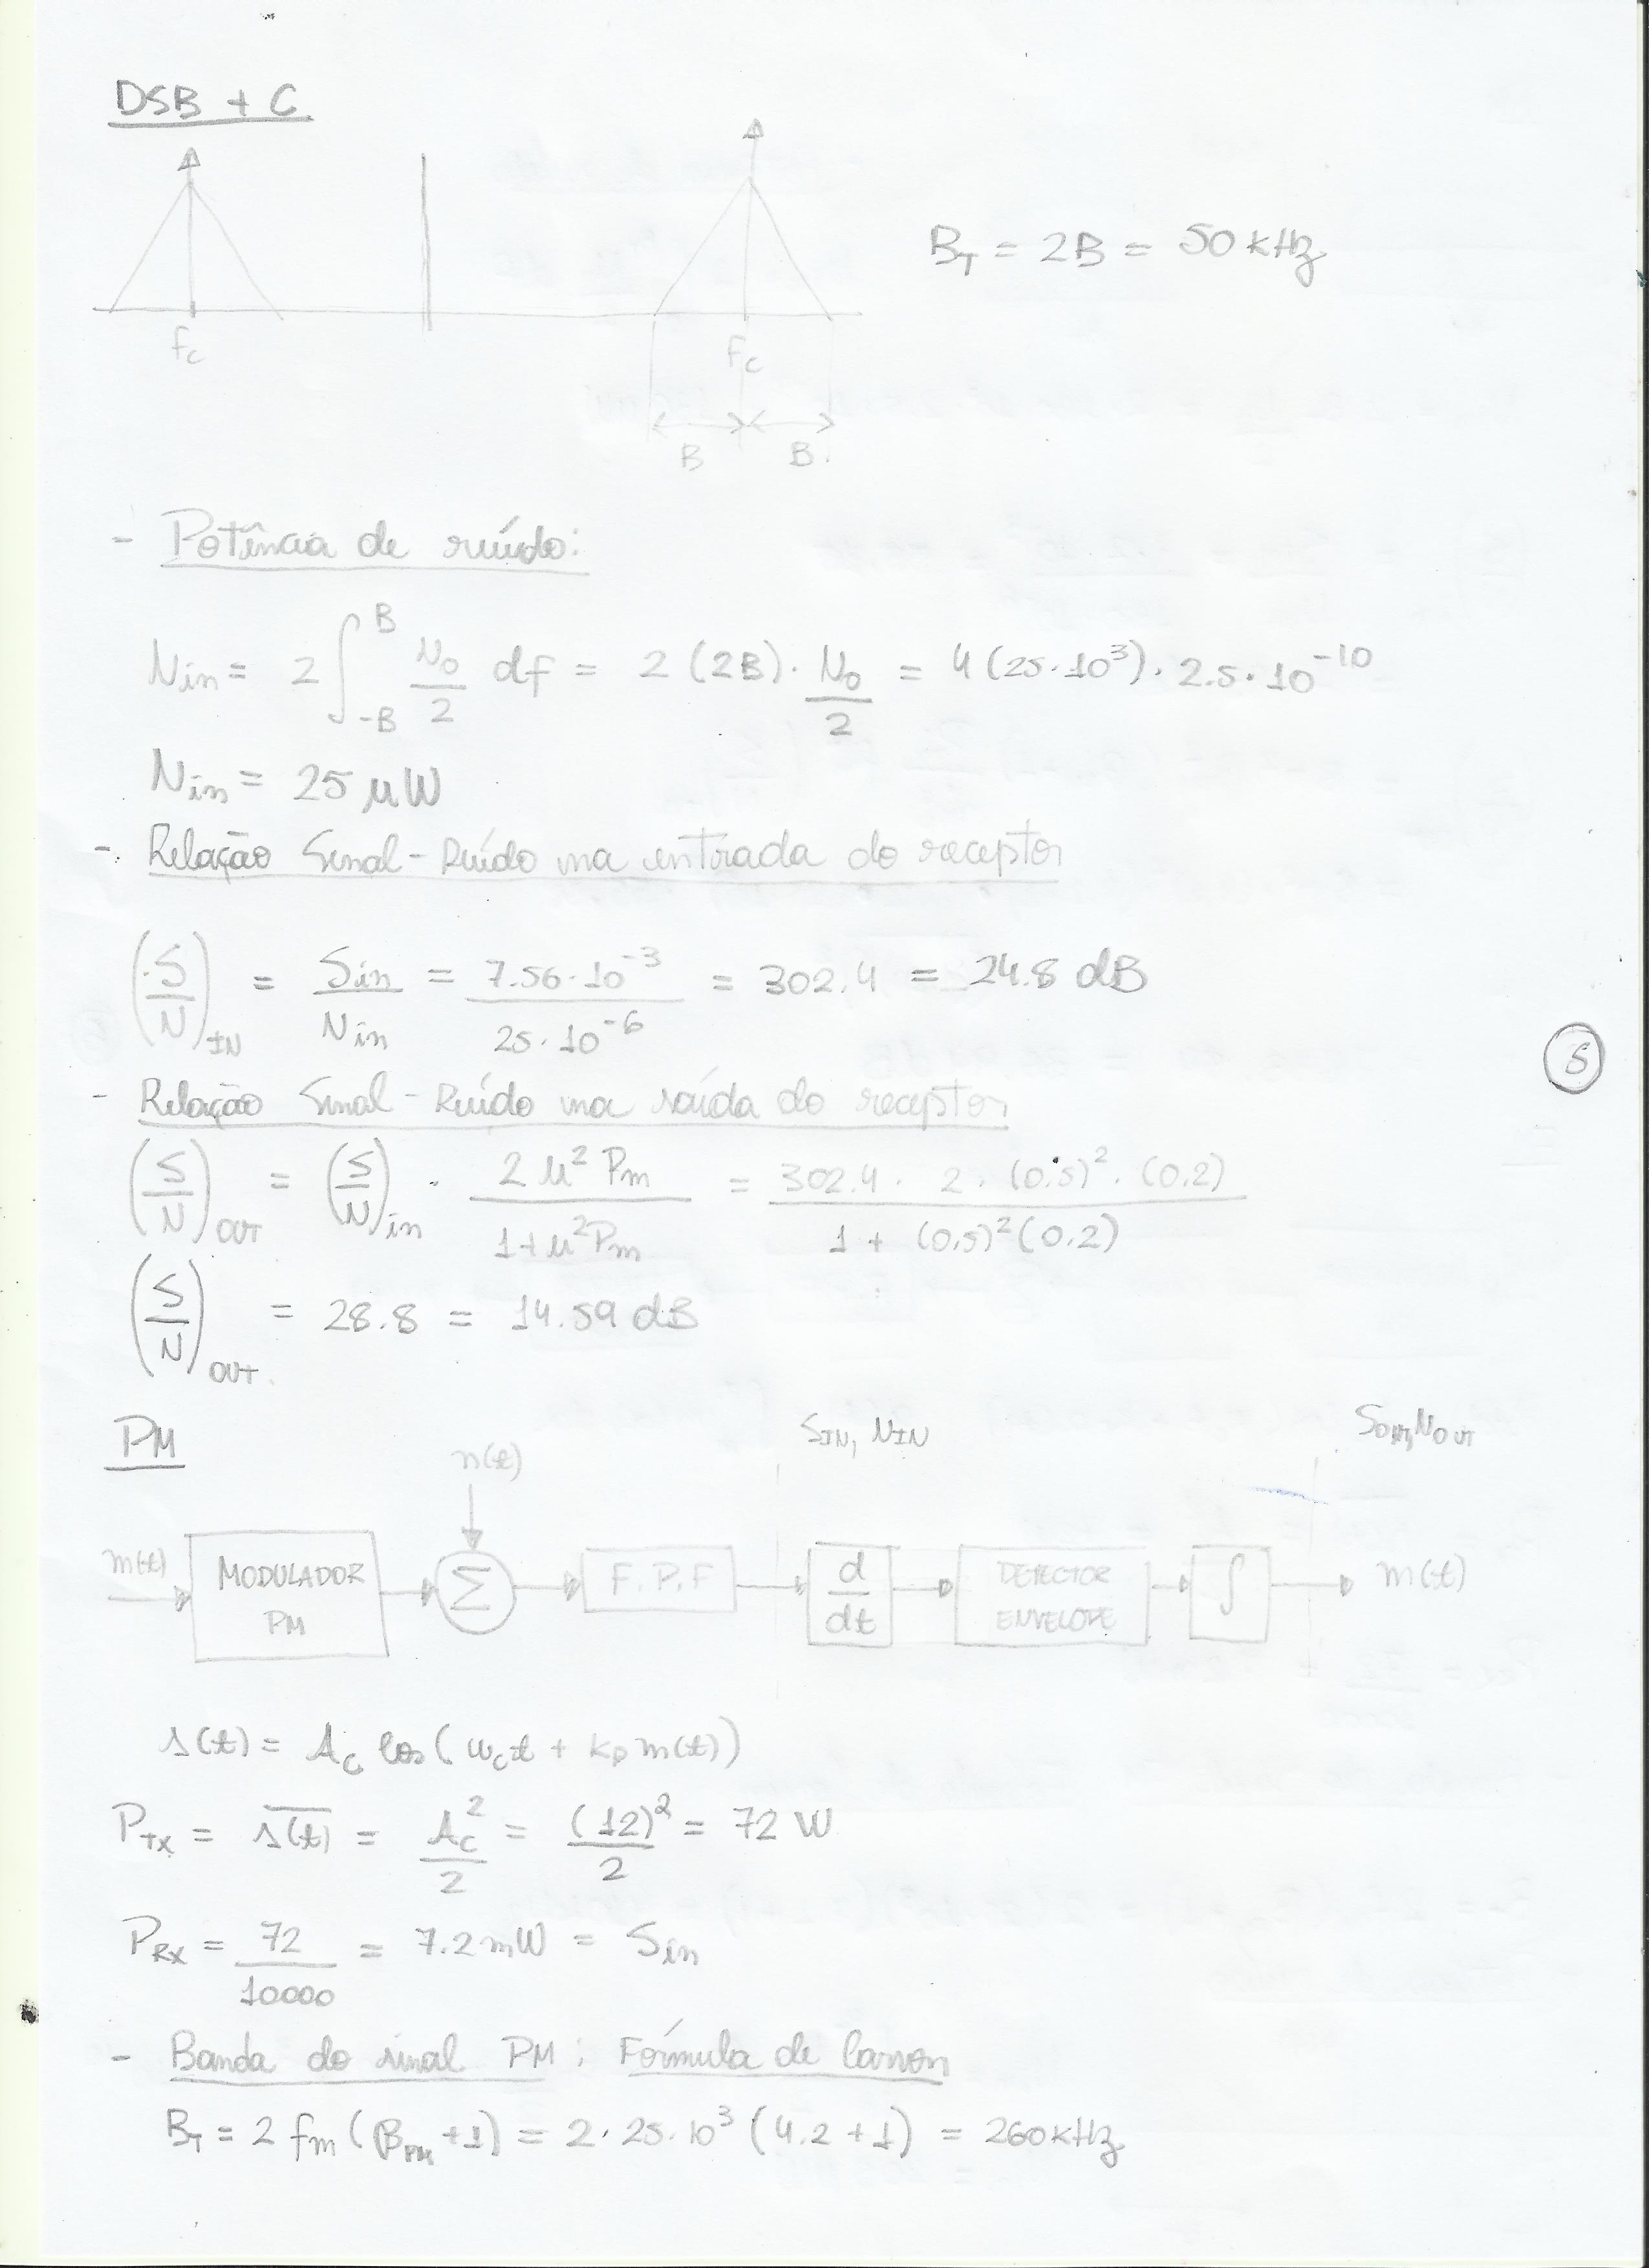 DSB + C
B_T = 2B = 50 kHz
fc
fc
B B.
- Potência de ruído:
Nin = 2 ∫_{-B}^{B} No/2 df = 2 (2B) · No/2 = 4 (25·10³) · 2.5·10⁻¹⁰
Nin = 25 μW
- Relação Sinal-Ruído na entrada do receptor
(S/N)_IN = Sin/Nin = 7.56·10⁻³/25·10⁻⁶ = 302.4 = 24.8 dB
5
- Relação Sinal-Ruído na saída do receptor
(S/N)_OUT = (S/N)_in · 2μ²Pm/1+μ²Pm = 302.4 · 2 · (0.5)² · (0.2)/1 + (0.5)²(0.2)
(S/N)_OUT. = 28.8 = 14.59 dB
PM
n(t)
S_IN, N_IN
S_OUT, N_OUT
m(t)
MODULADOR
PM
Σ
F.P.F
d/dt
DETECTOR
ENVELOPE
∫
m(t)
s(t) = Ac cos(wct + kp m(t))
P_TX = \overline{s(t)} = Ac²/2 = (12)²/2 = 72 W
P_RX = 72/10000 = 7.2 mW = Sin
- Banda do sinal PM: Fórmula de Carson
B_T = 2 fm (β_PM + 1) = 2·25·10³ (4.2 + 1) = 260 kHz